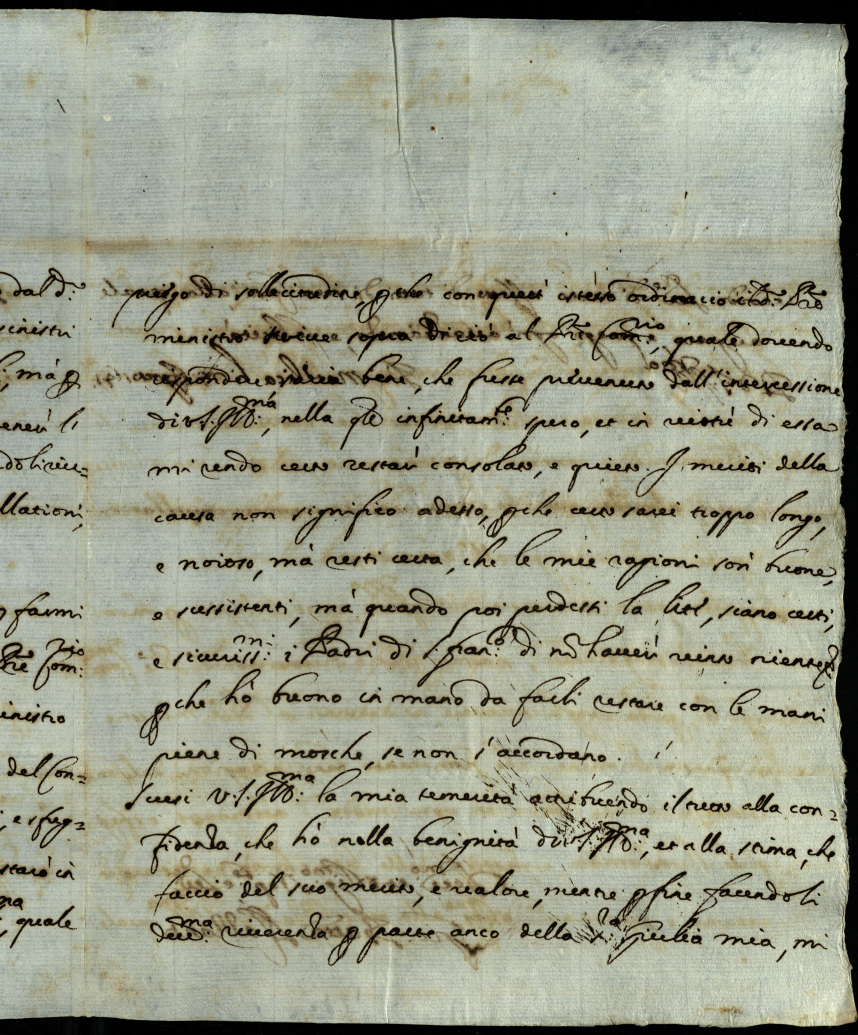 dal d:
priego di sollecitudine, p che con quest' istesso ordinario il d: Pre
ministri
ministro scrive sopra di ciò al Pre Com:rio, quale dovendo
, mà p
rispondere saria bene, che fusse prevenuto dall'intercessione
di V.S. Ill:ma, nella qle infinitam:te spero, et in virtù di essa
mi rendo certo restar consolato, e quieto. I meriti della
llationi,
causa non significo adesso, p che certo sarei troppo longo,
e noioso, mà resti certa, che le mie ragioni son buone,
farmi
e sussistenti, mà quando poi perdessi la lite, siano certi,
Pre Com:rio
e sicuriss:mi i Padri di S. Fran:co di nō haver vinto niente,
ministro
p che hò buono in mano da farli restare con le mani
del Con=
piene di mosche, se non s'accordano.
Scusi V.S. Ill:ma la mia temerità attribuendo il tutto alla con=
e sfug=
fidenza, che hò nella benignità di V.S. Ill:ma, et alla stima, che
starò in
faccio del suo merito, e valore, mentre p fine facendoli
, quale
dev:ma riverenza p parte anco della S:ra Giulia mia, mi